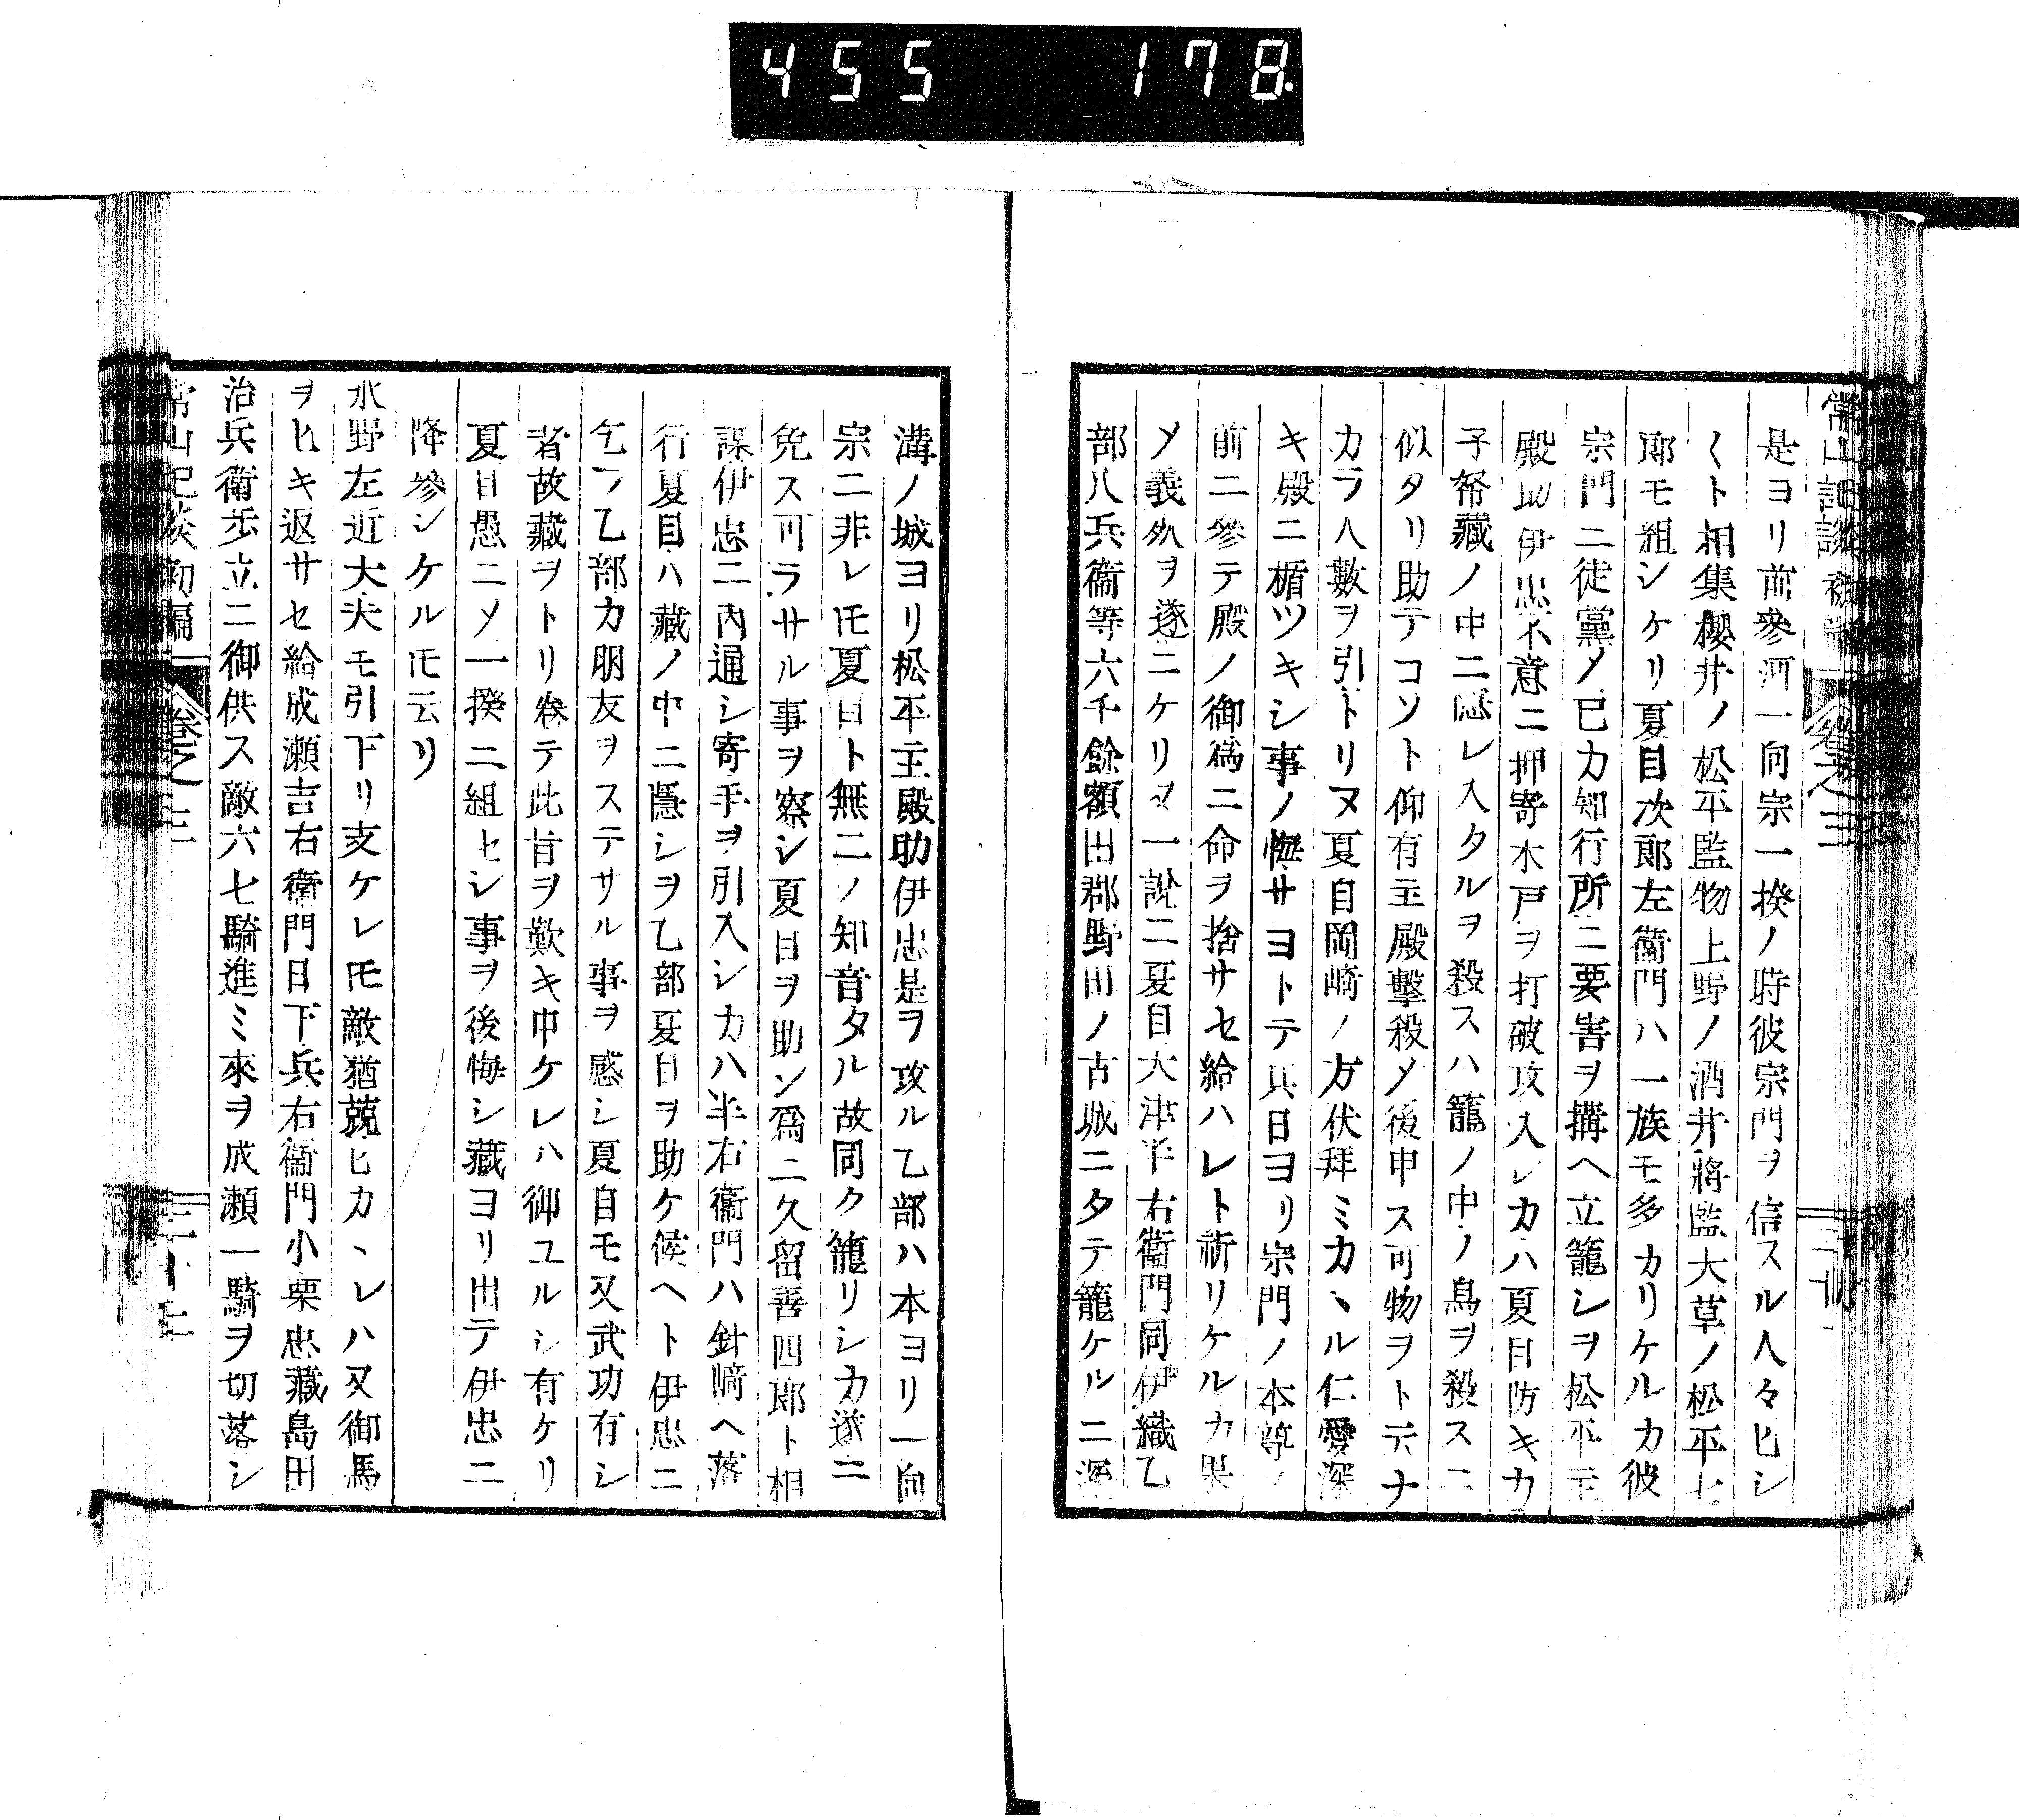 455 178.
是ヨリ前參河一向宗一揆ノ時彼宗門ヲ信スル人々ヒシ
〱ト相集櫻井ノ松平監物上野ノ酒井將監大草ノ松平七
郎モ組シケリ夏目次郎左衞門ハ一族モ多カリケルカ彼
宗門ニ徒黨ノ已カ知行所ニ要害ヲ搆ヘ立籠シヲ松平主
殿助伊忠不意ニ押寄木戸ヲ打破攻入レカハ夏目防キカ
子帑藏ノ中ニ隱レ入タルヲ殺スハ籠ノ中ノ鳥ヲ殺スニ
似タリ助テコソト仰有主殿擊殺メ後申ス可物ヲト云ナ
カラ人數ヲ引トリヌ夏目岡崎ノ方伏拜ミカヽル仁愛深
キ殿ニ楯ツキシ事ノ悔サヨトテ其日ヨリ宗門ノ本尊ノ
前ニ參テ殿ノ御爲ニ命ヲ捨サセ給ハレト祈リケルカ果
メ義死ヲ遂ニケリ又一說ニ夏目大津半右衞門同伊織乙
部八兵衞等六千餘額田郡野田ノ古城ニタテ籠ケルニ深
溝ノ城ヨリ松平主殿助伊忠是ヲ攻ル乙部ハ本ヨリ一向
宗ニ非レ𪜈夏目ト無二ノ知音タル故同ク籠リシカ遂ニ
免ス可ラサル事ヲ察シ夏目ヲ助ン爲ニ久留善四郎ト相
謀伊忠ニ内通シ寄手ヲ引入シカハ半右衞門ハ針﨑ヘ落
行夏目ハ藏ノ中ニ隱シヲ乙部夏目ヲ助ケ候ヘト伊忠ニ
乞フ乙部カ朋友ヲステサル事ヲ感シ夏目モ又武功有シ
者故藏ヲトリ卷テ此旨ヲ歎キ申ケレハ御ユルシ有ケリ
夏目愚ニメ一揆ニ組セシ事ヲ後悔シ藏ヨリ出テ伊忠ニ
降參シケル𪜈云リ
水野左近大夫モ引下リ支ケレ𪜈敵猶競ヒカヽレハ又御馬
ヲヒキ返サセ給成瀬吉右衞門日下兵右衞門小栗忠藏島田
治兵衞歩立ニ御供ス敵六七騎進ミ來ヲ成瀬一騎ヲ切落シ